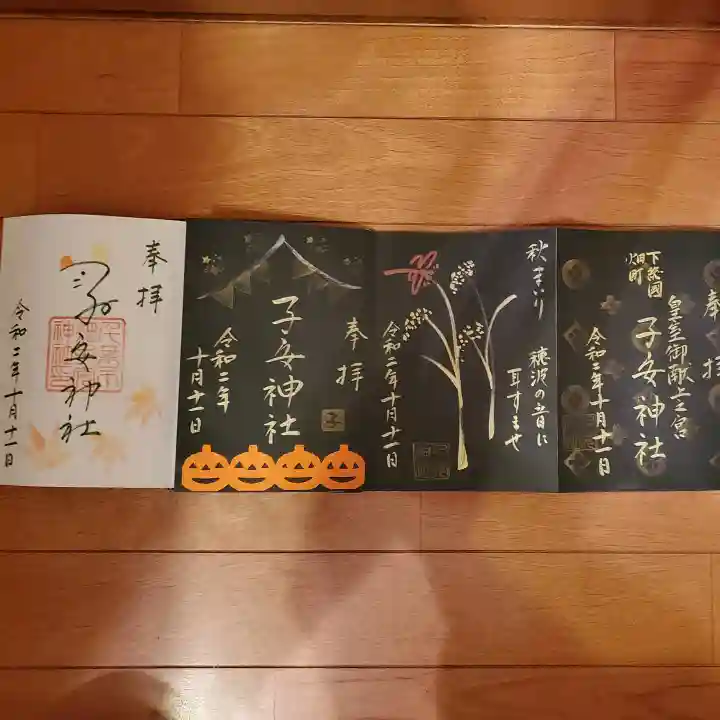 奉拝
子安神社
令和二年十月十一日
奉拝
子安神社
子
令和二年
十月十一日
秋まつり
穂波の音に
耳すませ
令和二年十月十一日
奉拝
皇室御献上之宮
下総國
畑町
子安神社
令和二年十月十一日